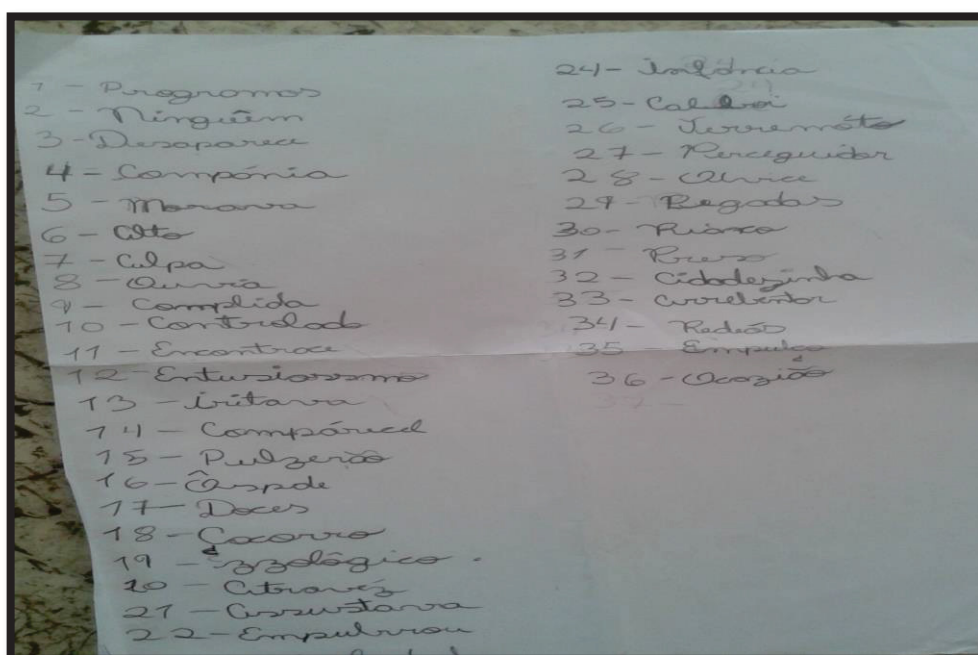 1 - Programas
2 - Ninguêm
3 - Desaparece
4 - Compánia
5 - Morava
6 - Alto
7 - Culpa
8 - Ouvia
9 - Complida
10 - Controlado
11 - Encontrace
12 - Entusiassmo
13 - iritava
14 - Compárecel
15 - Pulzerão
16 - Ôspde
17 - Doces
18 - Cocorro
19 - Zzológico.
20 - Atravéz
21 - Assustava
22 - Empulrrou
24 - Infância
25 -
26 - Terremóto
27 - Perceguidor
28 -
29 - Pegadas
30 -
31 - Preso
32 - Cidadezinha
33 - arrebentar
34 -
35 - Empulço
36 - Ocazião